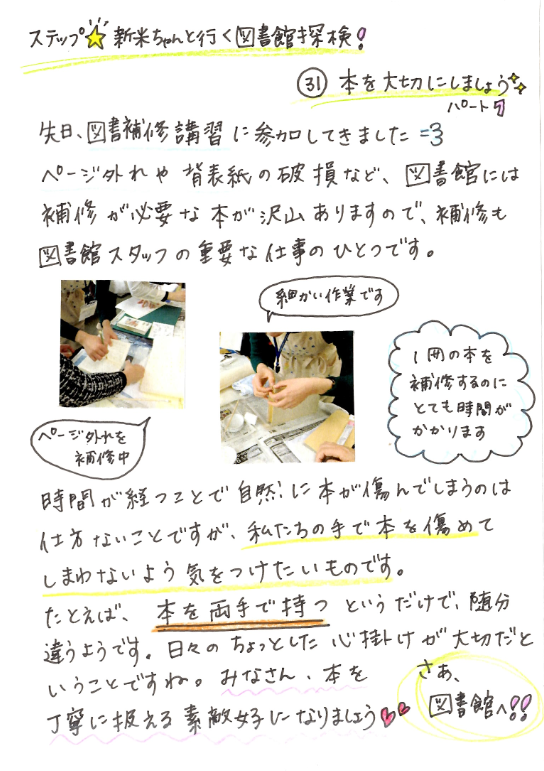 ステップ☆新米ちゃんと行く図書館探検!
㉛ 本を大切にしましょう
パート7
先日、図書補修講習に参加してきました=3
ページ外れや背表紙の破損など、図書館には
補修が必要な本が沢山ありますので、補修も
図書館スタッフの重要な仕事のひとつです。
細かい作業です
1冊の本を
補修するのに
とても時間が
かかります
ページ外れを
補修中
時間が経つことで自然に本が傷んでしまうのは
仕方ないことですが、私たちの手で本を傷めて
しまわないよう気をつけたいものです。
たとえば、本を両手で持つというだけで、随分
違うようです。日々のちょっとした心掛けが大切だと
いうことですね。みなさん、本を
丁寧に扱える素敵女子になりましょう
さあ、
図書館へ!!